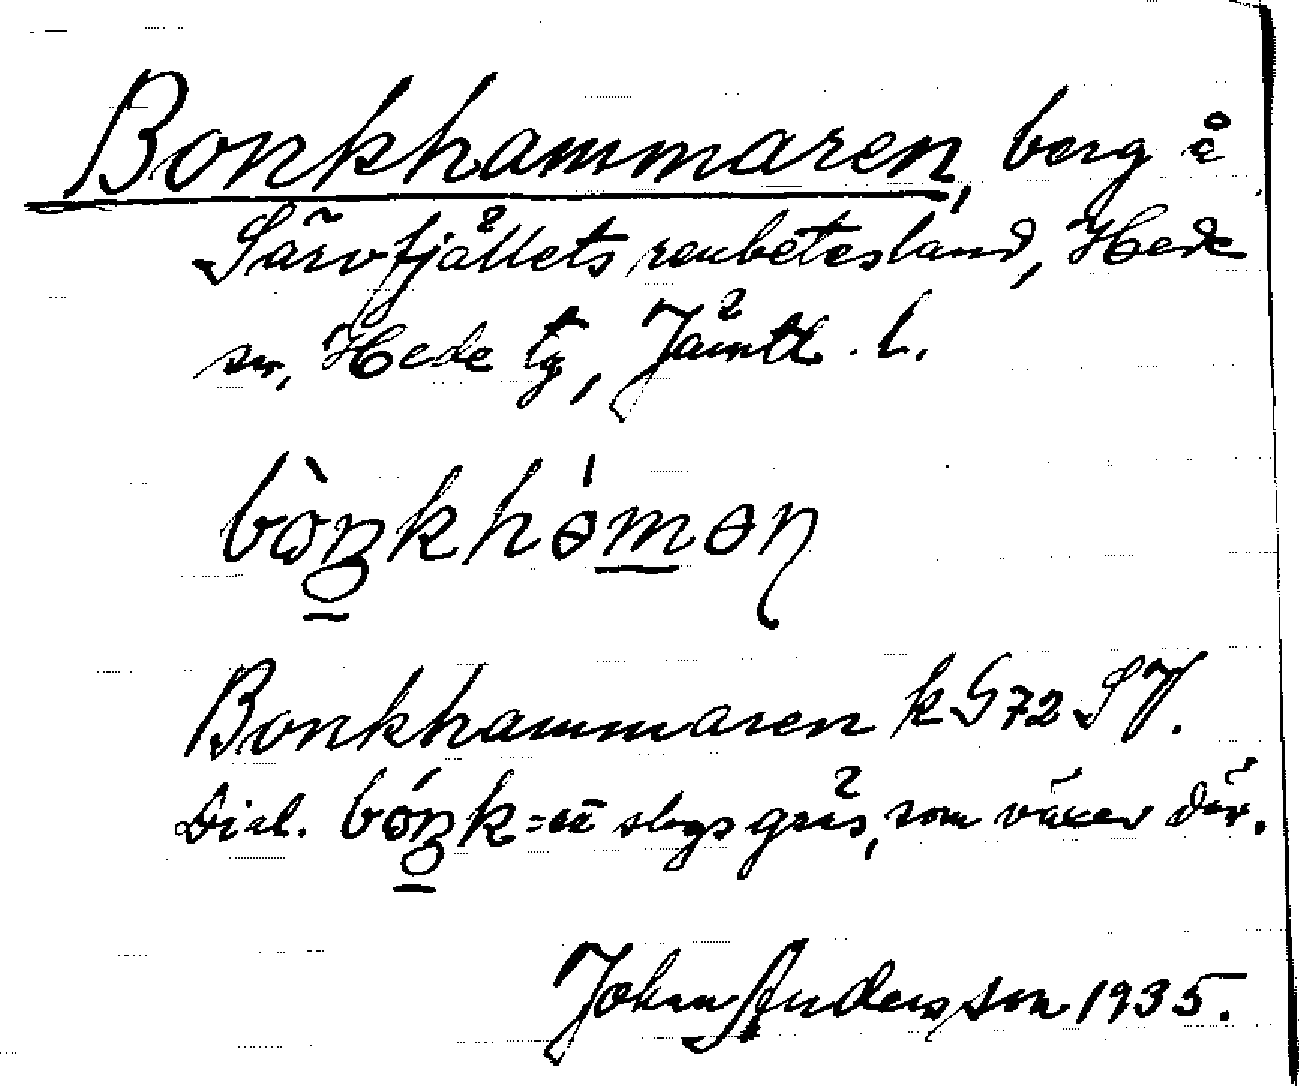 Bonkhammaren, berg å
Särvfjällets renbetesland, Hede
sn, Hede tg, Jämtl. l.
Bonkhammaren k G72 SV.
Dial. = ett slags gräs, som växer där.
Johan Andersson 1935.